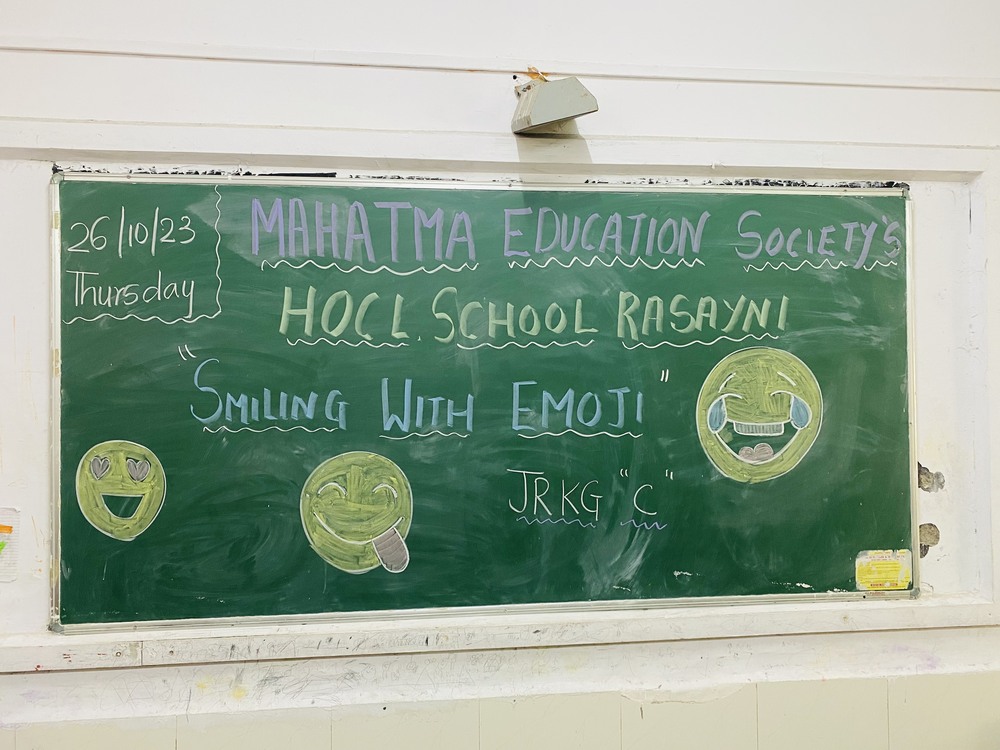 26/10/23
Thursday
MAHATMA EDUCATION SOCIETY'S
HOCL SCHOOL RASAYNI
"SMILING WITH EMOJI"
JRKG "C"